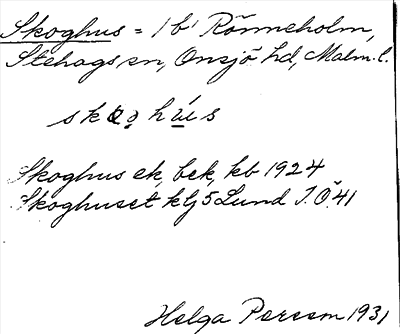 Skoghus = 1 b Rönneholm,
Stehags sn, Onsjö hd, Malm. l.
Skoghus ek, bek, kb 1924
Skoghuset klj 5 Lund I. Ö. 41
Helga Persson 1931